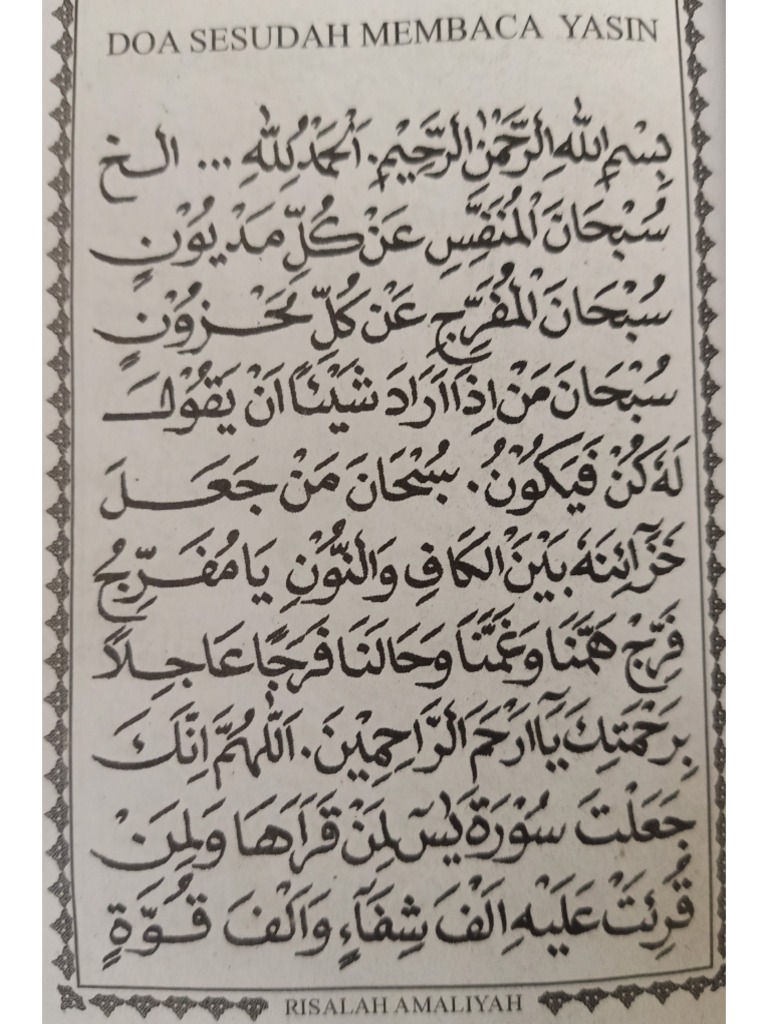 DOA SESUDAH MEMBACA YASIN
بِسْمِ اللهِ الرَّحْمٰنِ الرَّحِيْمِ. اَلْحَمْدُ لِلّٰهِ ... الخ
سُبْحَانَ الْمُنَفِّسِ عَنْ كُلِّ مَدْيُوْنٍ
سُبْحَانَ الْمُفَرِّجِ عَنْ كُلِّ مَحْزُوْنٍ
سُبْحَانَ مَنْ اِذَا اَرَادَ شَيْئًا اَنْ يَقُوْلَ
لَهٗ كُنْ فَيَكُوْنُ. سُبْحَانَ مَنْ جَعَلَ
خَزَآئِنَهٗ بَيْنَ الْكَافِ وَالنُّوْنِ يَا مُفَرِّجُ
فَرِّجْ هَمَّنَا وَغَمَّنَا وَحَالَنَا فَرَجًا عَاجِلًا
بِرَحْمَتِكَ يَآ اَرْحَمَ الرَّاحِمِيْنَ. اَللّٰهُمَّ اِنَّكَ
جَعَلْتَ سُوْرَةَ يٰسٓ لِمَنْ قَرَاَهَا وَلِمَنْ
قُرِئَتْ عَلَيْهِ اَلْفَ شِفَآءٍ وَاَلْفَ قُوَّةٍ
RISALAH AMALIYAH